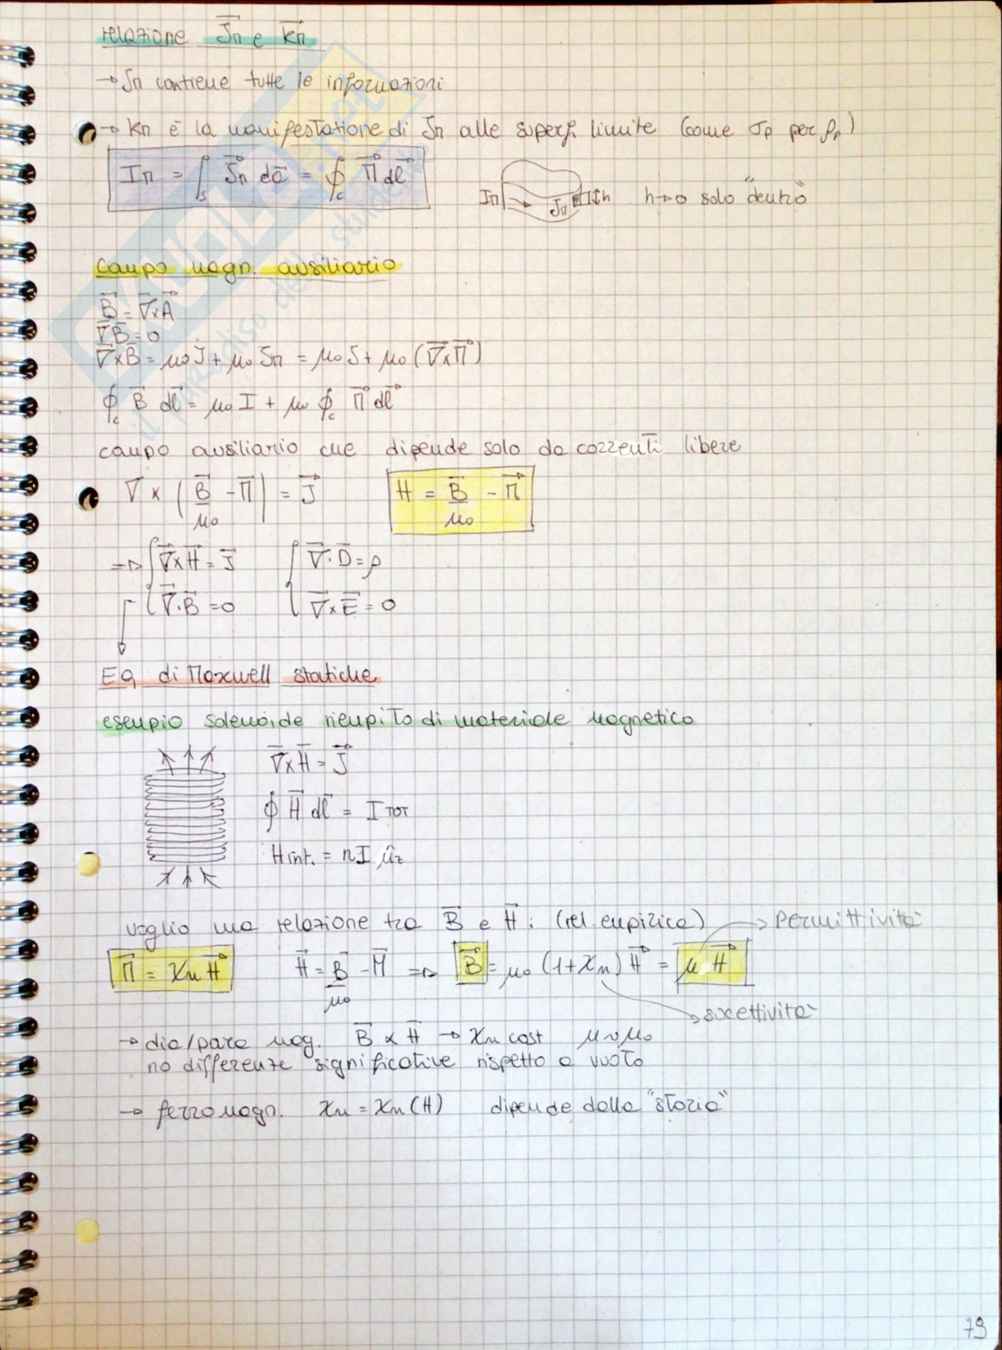 relazione J⃗m e K⃗m
→ Jm contiene tutte le informazioni
→ Km è la manifestazione di Jm alle superf. limite (come σp per ρp)
Im = ∫s J⃗m da⃗ = ∮c M⃗ dl⃗
Im Jm h h→0 solo "dentro"
Campo magn. ausiliario
B⃗ = ∇⃗×A⃗
∇⃗B⃗ = 0
∇⃗×B⃗ = μ0 J⃗ + μ0 Jm = μ0 J + μ0 (∇⃗×M⃗)
∮c B⃗ dl⃗ = μ0 I + μ0 ∮c M⃗ dl⃗
campo ausiliario che dipende solo da correnti libere
∇ × (B⃗/μ0 - M⃗) = J⃗ H = B⃗/μ0 - M⃗
⇒ { ∇⃗×H⃗ = J⃗ { ∇⃗·D⃗ = ρ
∇⃗·B⃗ = 0 ∇⃗×E⃗ = 0
EQ. di Maxwell statiche
esempio solenoide riempito di materiale magnetico
∇⃗×H⃗ = J⃗
∮ H⃗ dl⃗ = I TOT
H int. = nI ûz
voglio una relazione tra B⃗ e H⃗: (rel. empirica) → permittività
M⃗ = χm H⃗ H⃗ = B⃗/μ0 - M⃗ ⇒ B⃗ = μ0 (1+χm) H⃗ = μ H⃗
→ suscettività
→ dia/para mag. B⃗ ∝ H⃗ → χm cost μ~μ0
no differenze significative rispetto a vuoto
→ ferromagn. χm = χm(H) dipende dalla "storia"
79